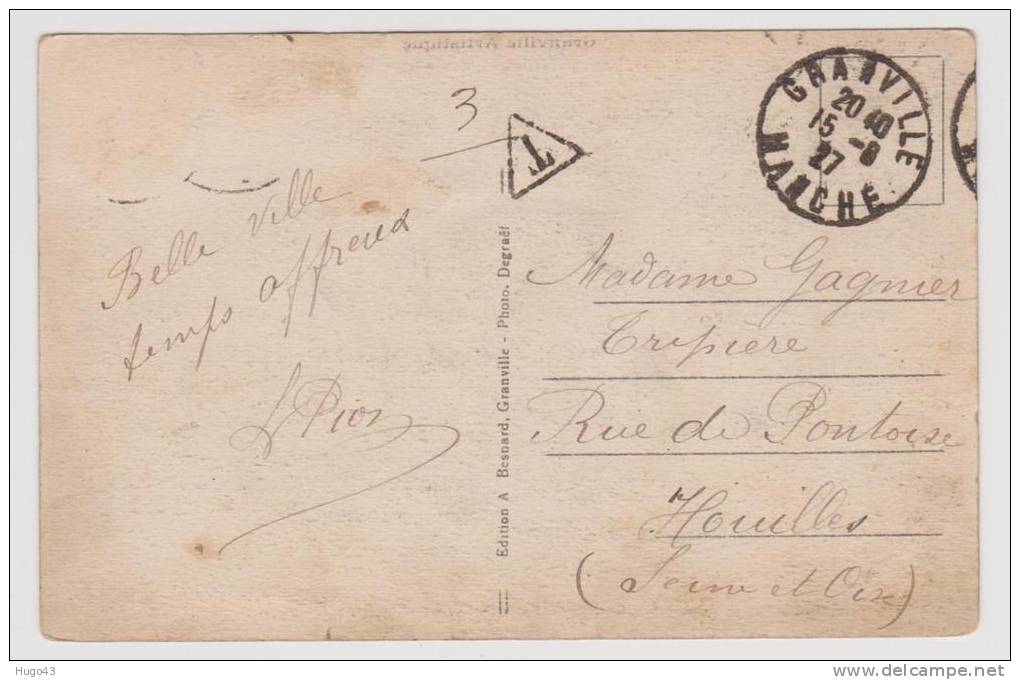 Granville Artistique
3
T
GRANVILLE
20 40
15 -8
27
MANCHE
Belle ville
temps affreux
Edition A Besnard, Granville - Photo. Degraëf
Madame Gagnier
Tripière
Rue de Pontoise
Houilles
(Seine et Oise)
Hugo43
www.delcampe.net